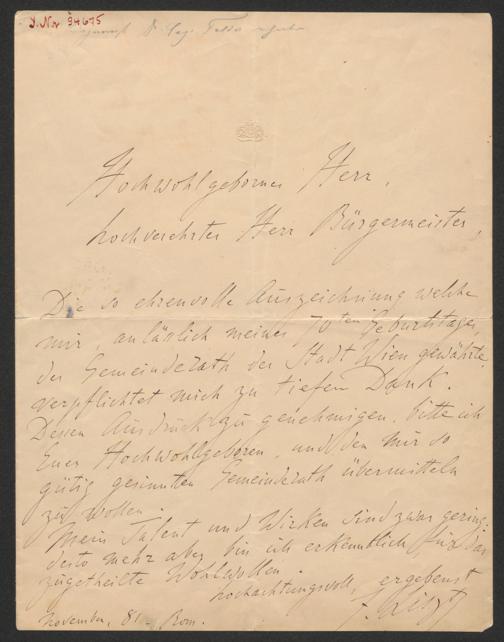 J. Nr 94675
Hochwohlgeborner Herr,
hochverehrter Herr Bürgermeister,
Die so ehrenvolle Auszeichnung welche
mir, anläßlich meines 70ten Geburtstages,
der Gemeinderath der Stadt Wien gewährte
verpflichtet mich zu tiefen Dank.
Dessen Ausdruck zu genehmigen, bitte ich
Euer Hochwohlgeboren, und den mir so
gütig gesinnten Gemeinderath übermitteln
zu wollen.
Mein Talent und Wirken sind zwar gering:
desto mehr aber bin ich erkenntlich für das
zugetheilte Wohlwollen.
hochachtungsvoll, ergebenst
F. Liszt
November, 81 – Rom.